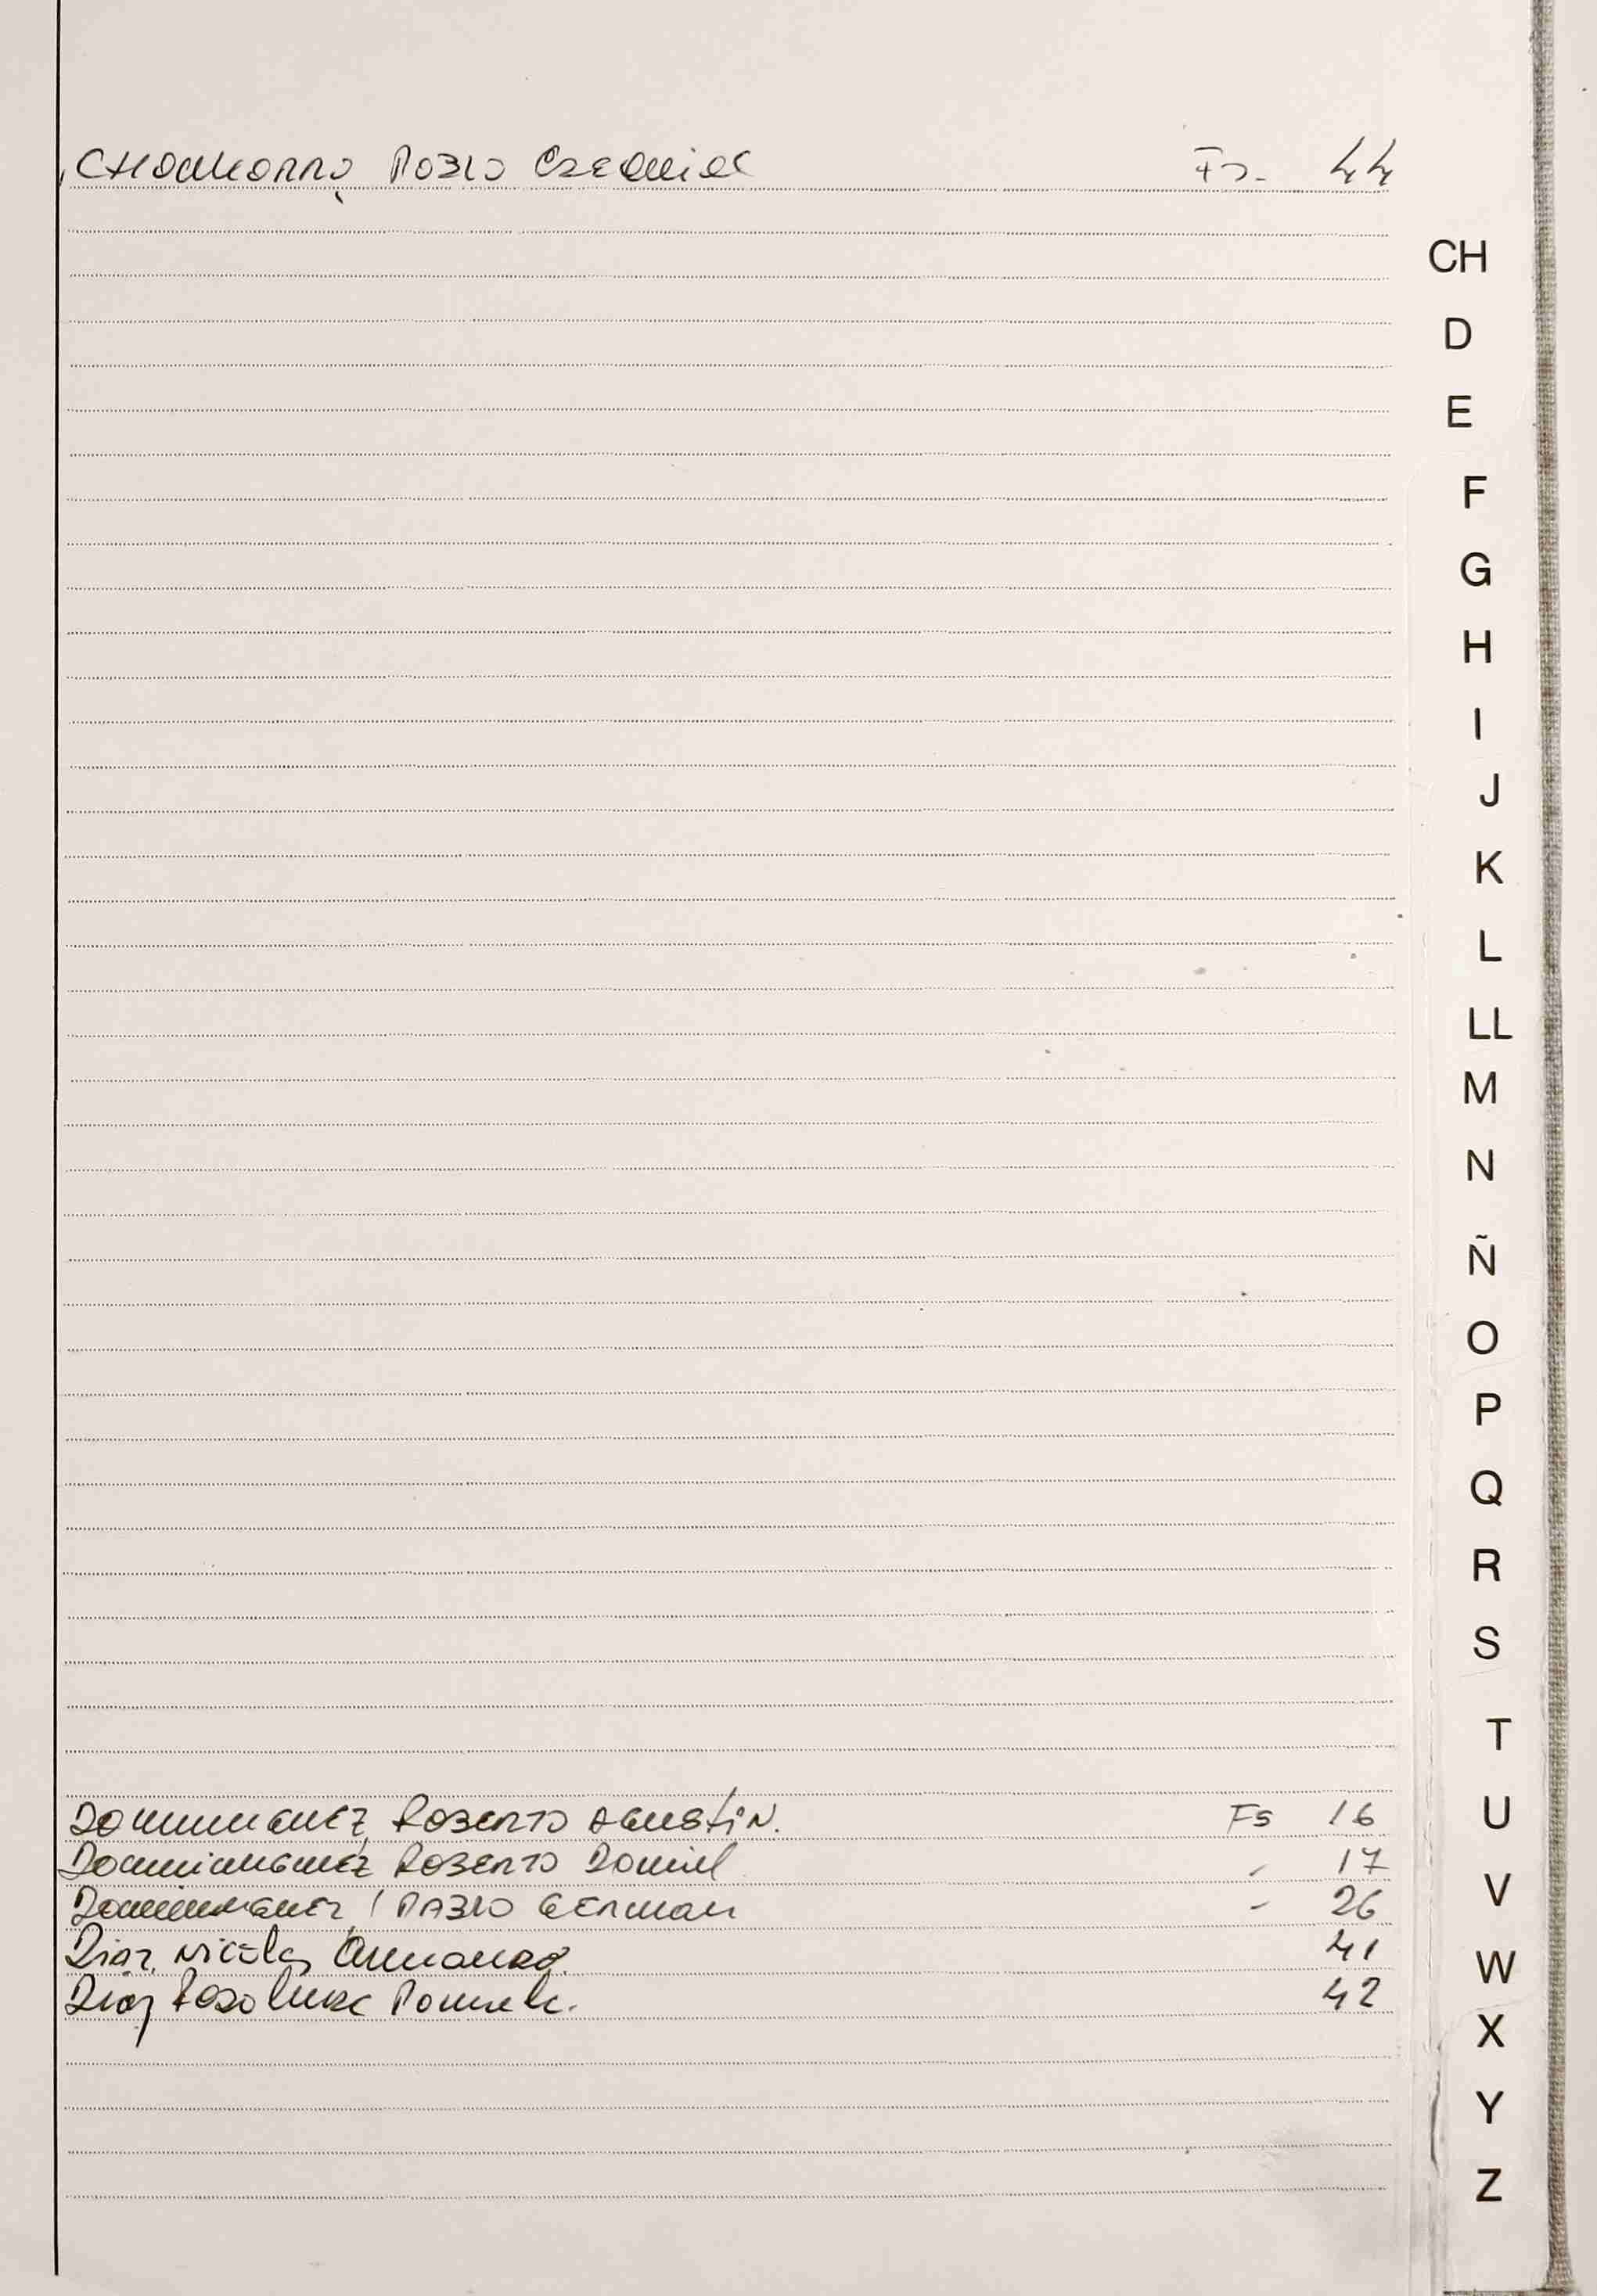 Pablo Ezequiel Fs. 44
CH
D
E
F
G
H
I
J
K
L
LL
M
N
Ñ
O
P
Q
R
S
T
DOMINGUEZ, ROBERTO AGUSTIN. FS 16
U
DOMINGUEZ ROBERTO Daniel - 17
V
DOMINGUEZ, PABLO GERMAN - 26
Diaz, Nicolas Armando. 41
W
Diaz 42
X
Y
Z